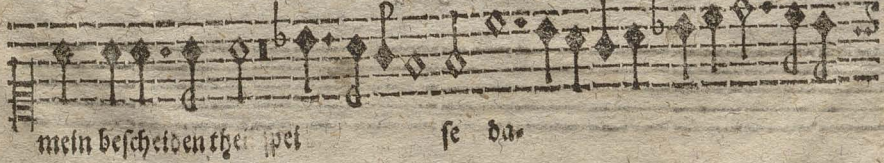 mein beſcheiden thei ſpei ſe da-